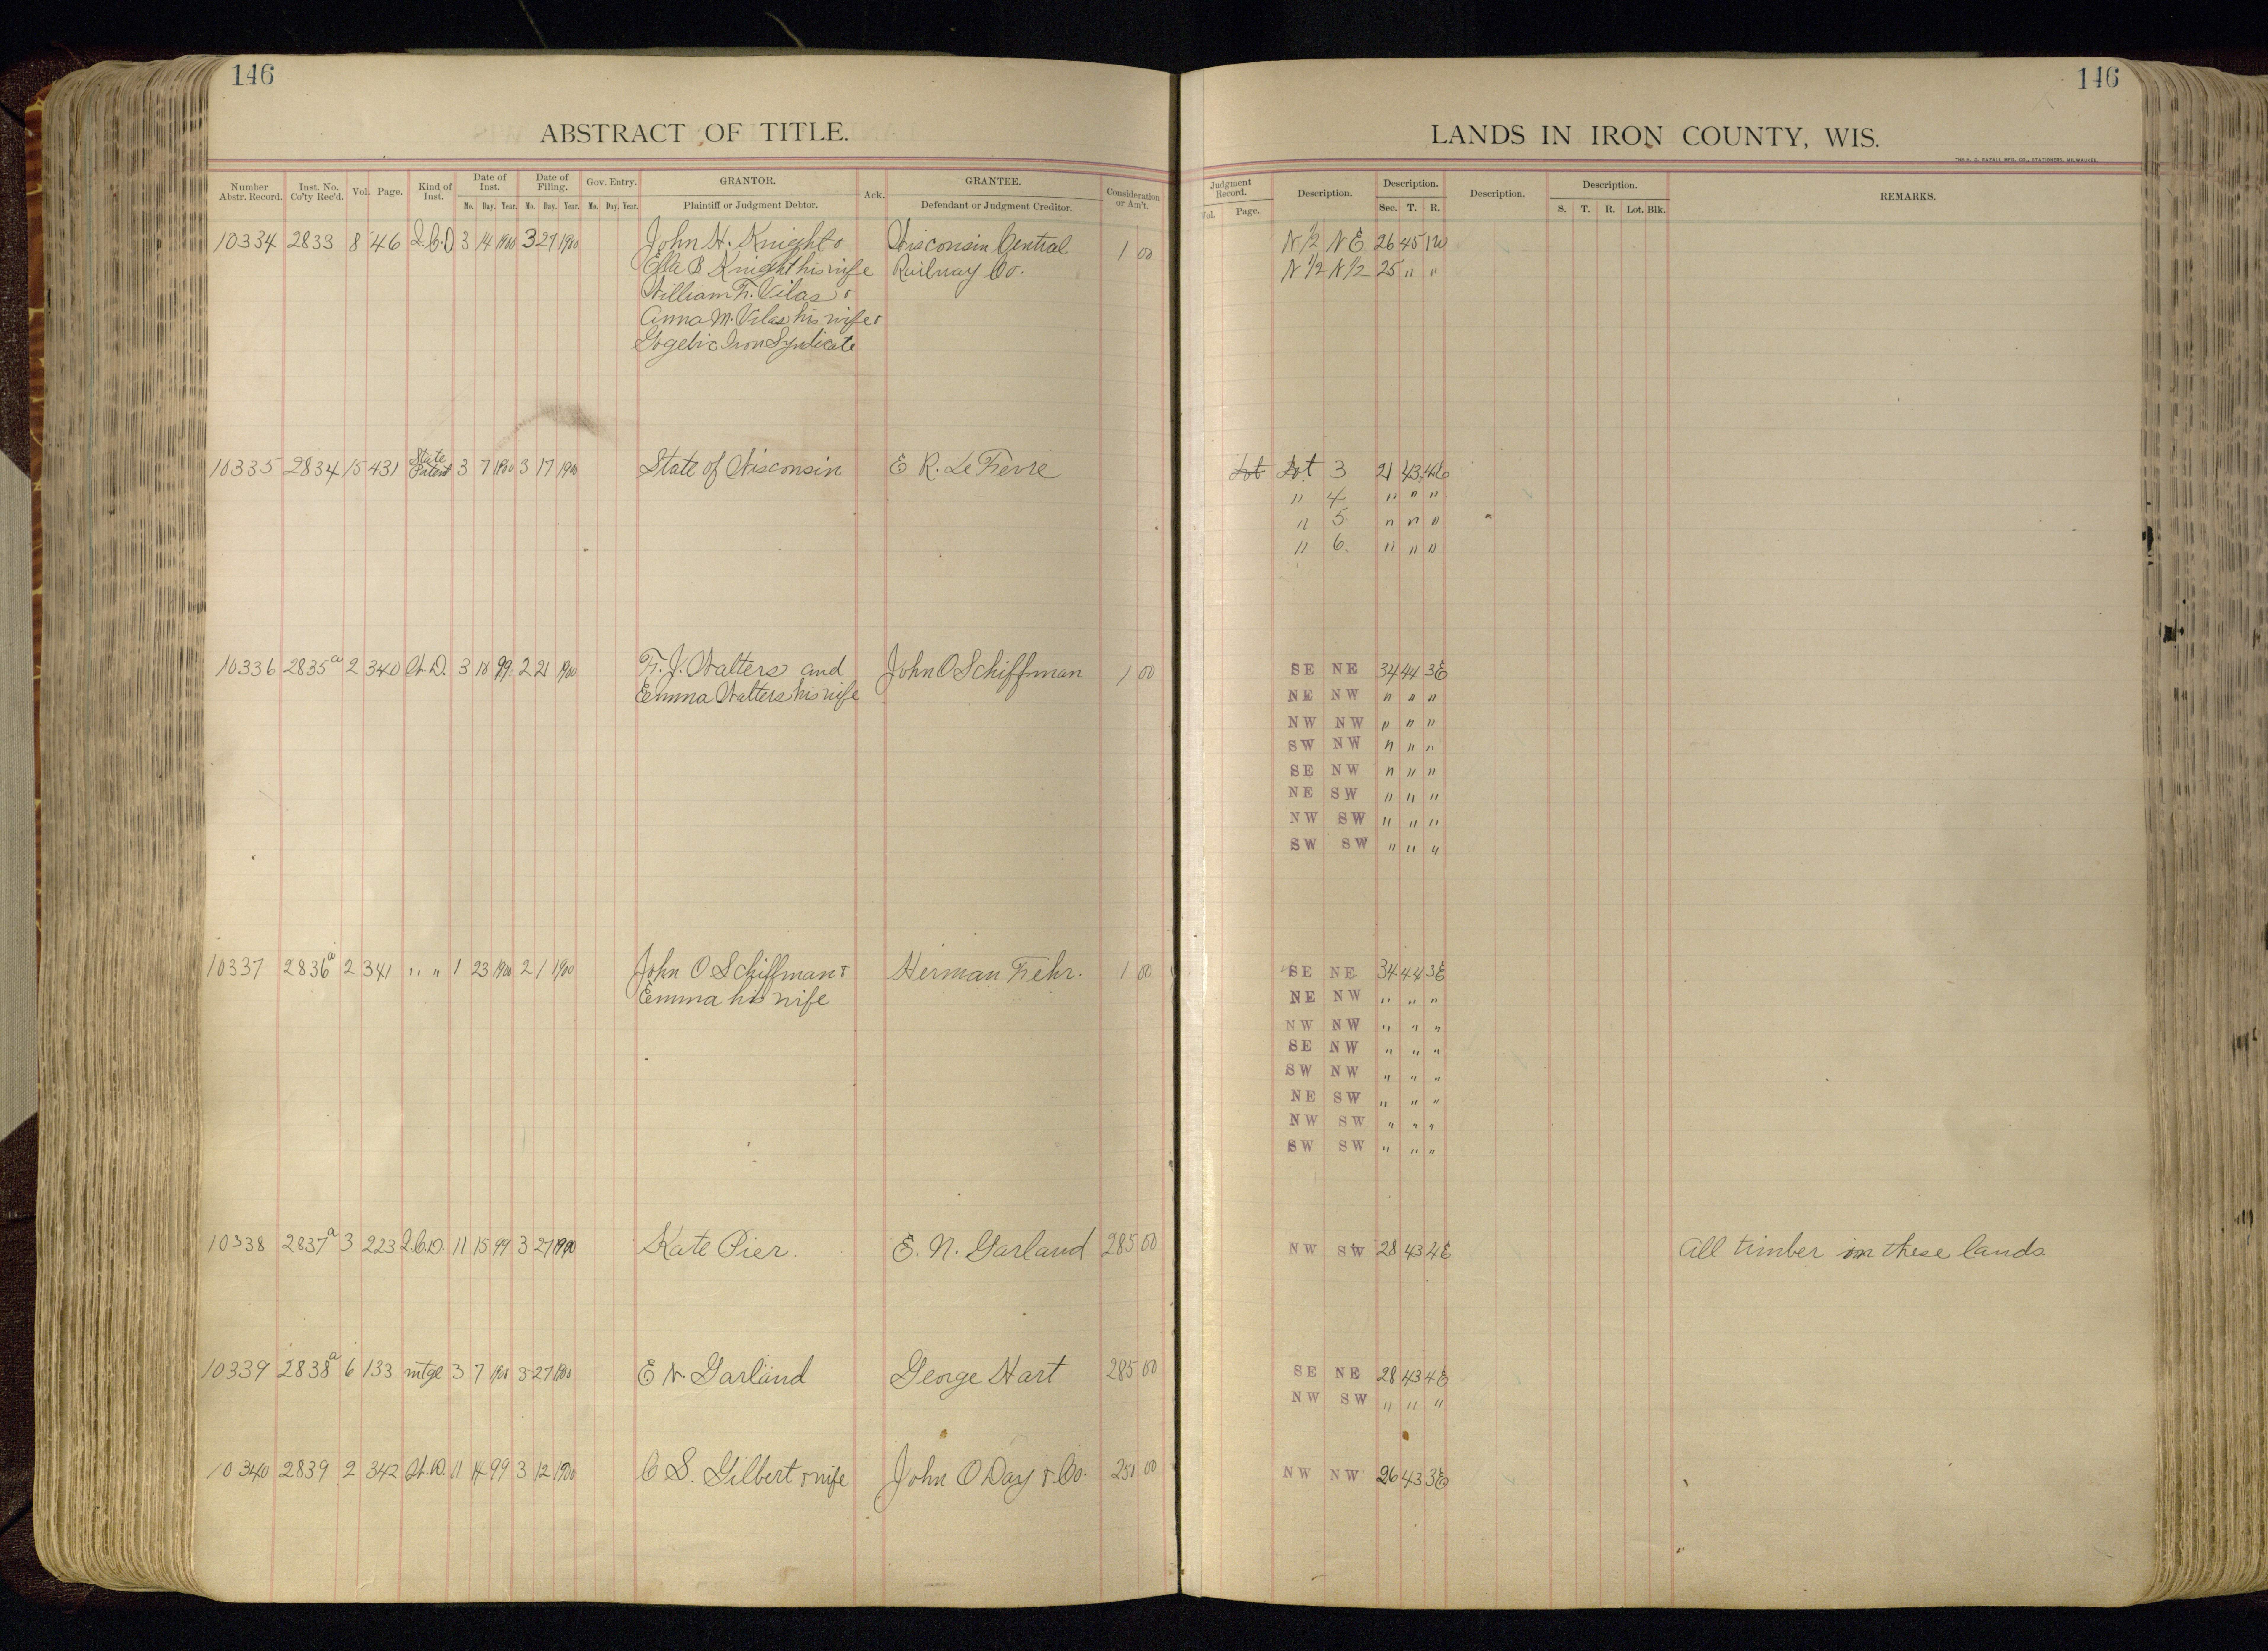 146
146
ABSTRACT OF TITLE.
LANDS IN IRON COUNTY, WIS.
Number Abstr. Record. Inst. No. Co'ty Rec'd. Vol. Page. Kind of Inst. Date of Inst. Mo. Day. Year. Date of Filing. Mo. Day. Year. Gov. Entry. Mo. Day. Year. GRANTOR. Plaintiff or Judgment Debtor. Ack. GRANTEE. Defendant or Judgment Creditor. Consideration or Am't. Judgment Record. Vol. Page. Description. Description. Sec. T. R. Description. Description. S. T. R. Lot. Blk. REMARKS.
10334 2833 8 46 Q.C.D 3 14 1900 3 27 1900 John H. Knight & Wisconsin Central 1 00 N 1/2 N E 26 45 1W
Ella B Knight his wife Railway Co. N 1/2 N 1/2 25 " "
William F. Vilas &
Anna M. Vilas his wife &
Gogebic Iron Syndicate
10335 2834 15 431 State Patent 3 7 1900 3 17 1900 State of Wisconsin E R. Le Fevre Lot Lot 3 21 43 4E
" 4 " " "
" 5 " " "
" 6. " " "
10336 2835a 2 340 W.D. 3 10 99 2 21 1900 F. J. Walters and John O Schiffman 1 00 SE NE 34 44 3E
Emma Walters his wife NE NW " " "
NW NW " " "
SW NW " " "
SE NW " " "
NE SW " " "
NW SW " " "
SW SW " " "
10337 2836a 2 341 " " 1 23 1900 2 1 1900 John O Schiffman & Herman Fehr. 1 00 SE NE 34 44 3E
Emma his wife NE NW " " "
NW NW " " "
SE NW " " "
SW NW " " "
NE SW " " "
NW SW " " "
SW SW " " "
10338 2837a 3 223 Q.C.D. 11 15 99 3 27 1900 Kate Pier. E. N. Garland 285 00 NW SW 28 43 4E All timber on these lands
10339 2838a 6 133 mtge 3 7 1900 3 27 1900 E N. Garland George Hart 285 00 SE NE 28 43 4E
NW SW " " "
10340 2839 2 342 W.D. 11 14 99 3 12 1900 C S. Gilbert & wife John O Day & Co. 250 00 NW NW 26 43 3E